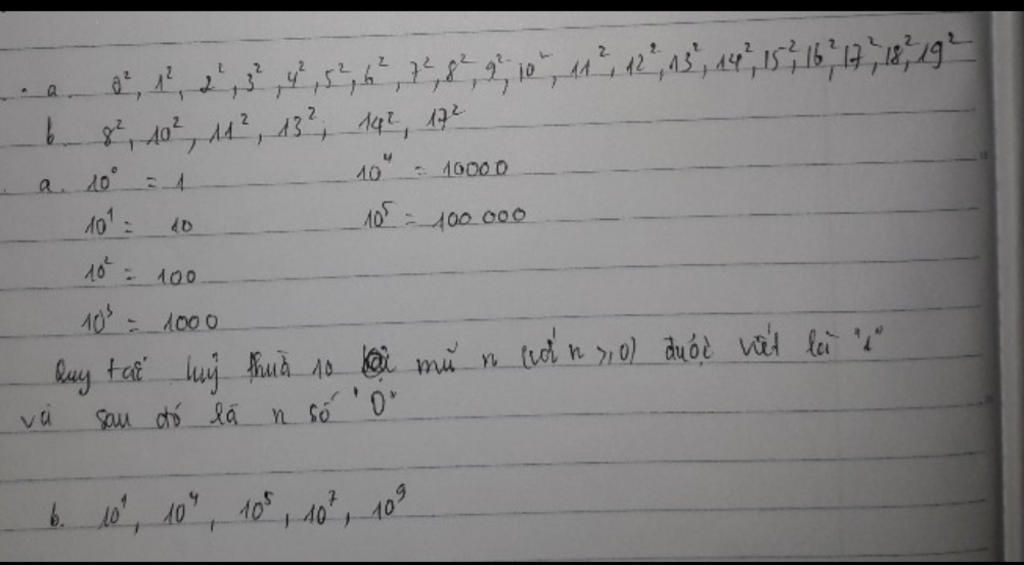 . a. 0², 1², 2², 3², 4², 5², 6², 7², 8², 9², 10², 11², 12², 13², 14², 15², 16², 17², 18², 19²
b. 8², 10², 11², 13², 14², 17²
. a. 10⁰ = 1 10⁴ = 10000
10¹ = 10 10⁵ = 100 000
10² = 100
10³ = 1000
Quy tắc luỹ thừa 10 mũ n (với n ⩾ 0) được viết là "1"
và sau đó là n số "0"
b. 10¹, 10⁴, 10⁵, 10⁷, 10⁹